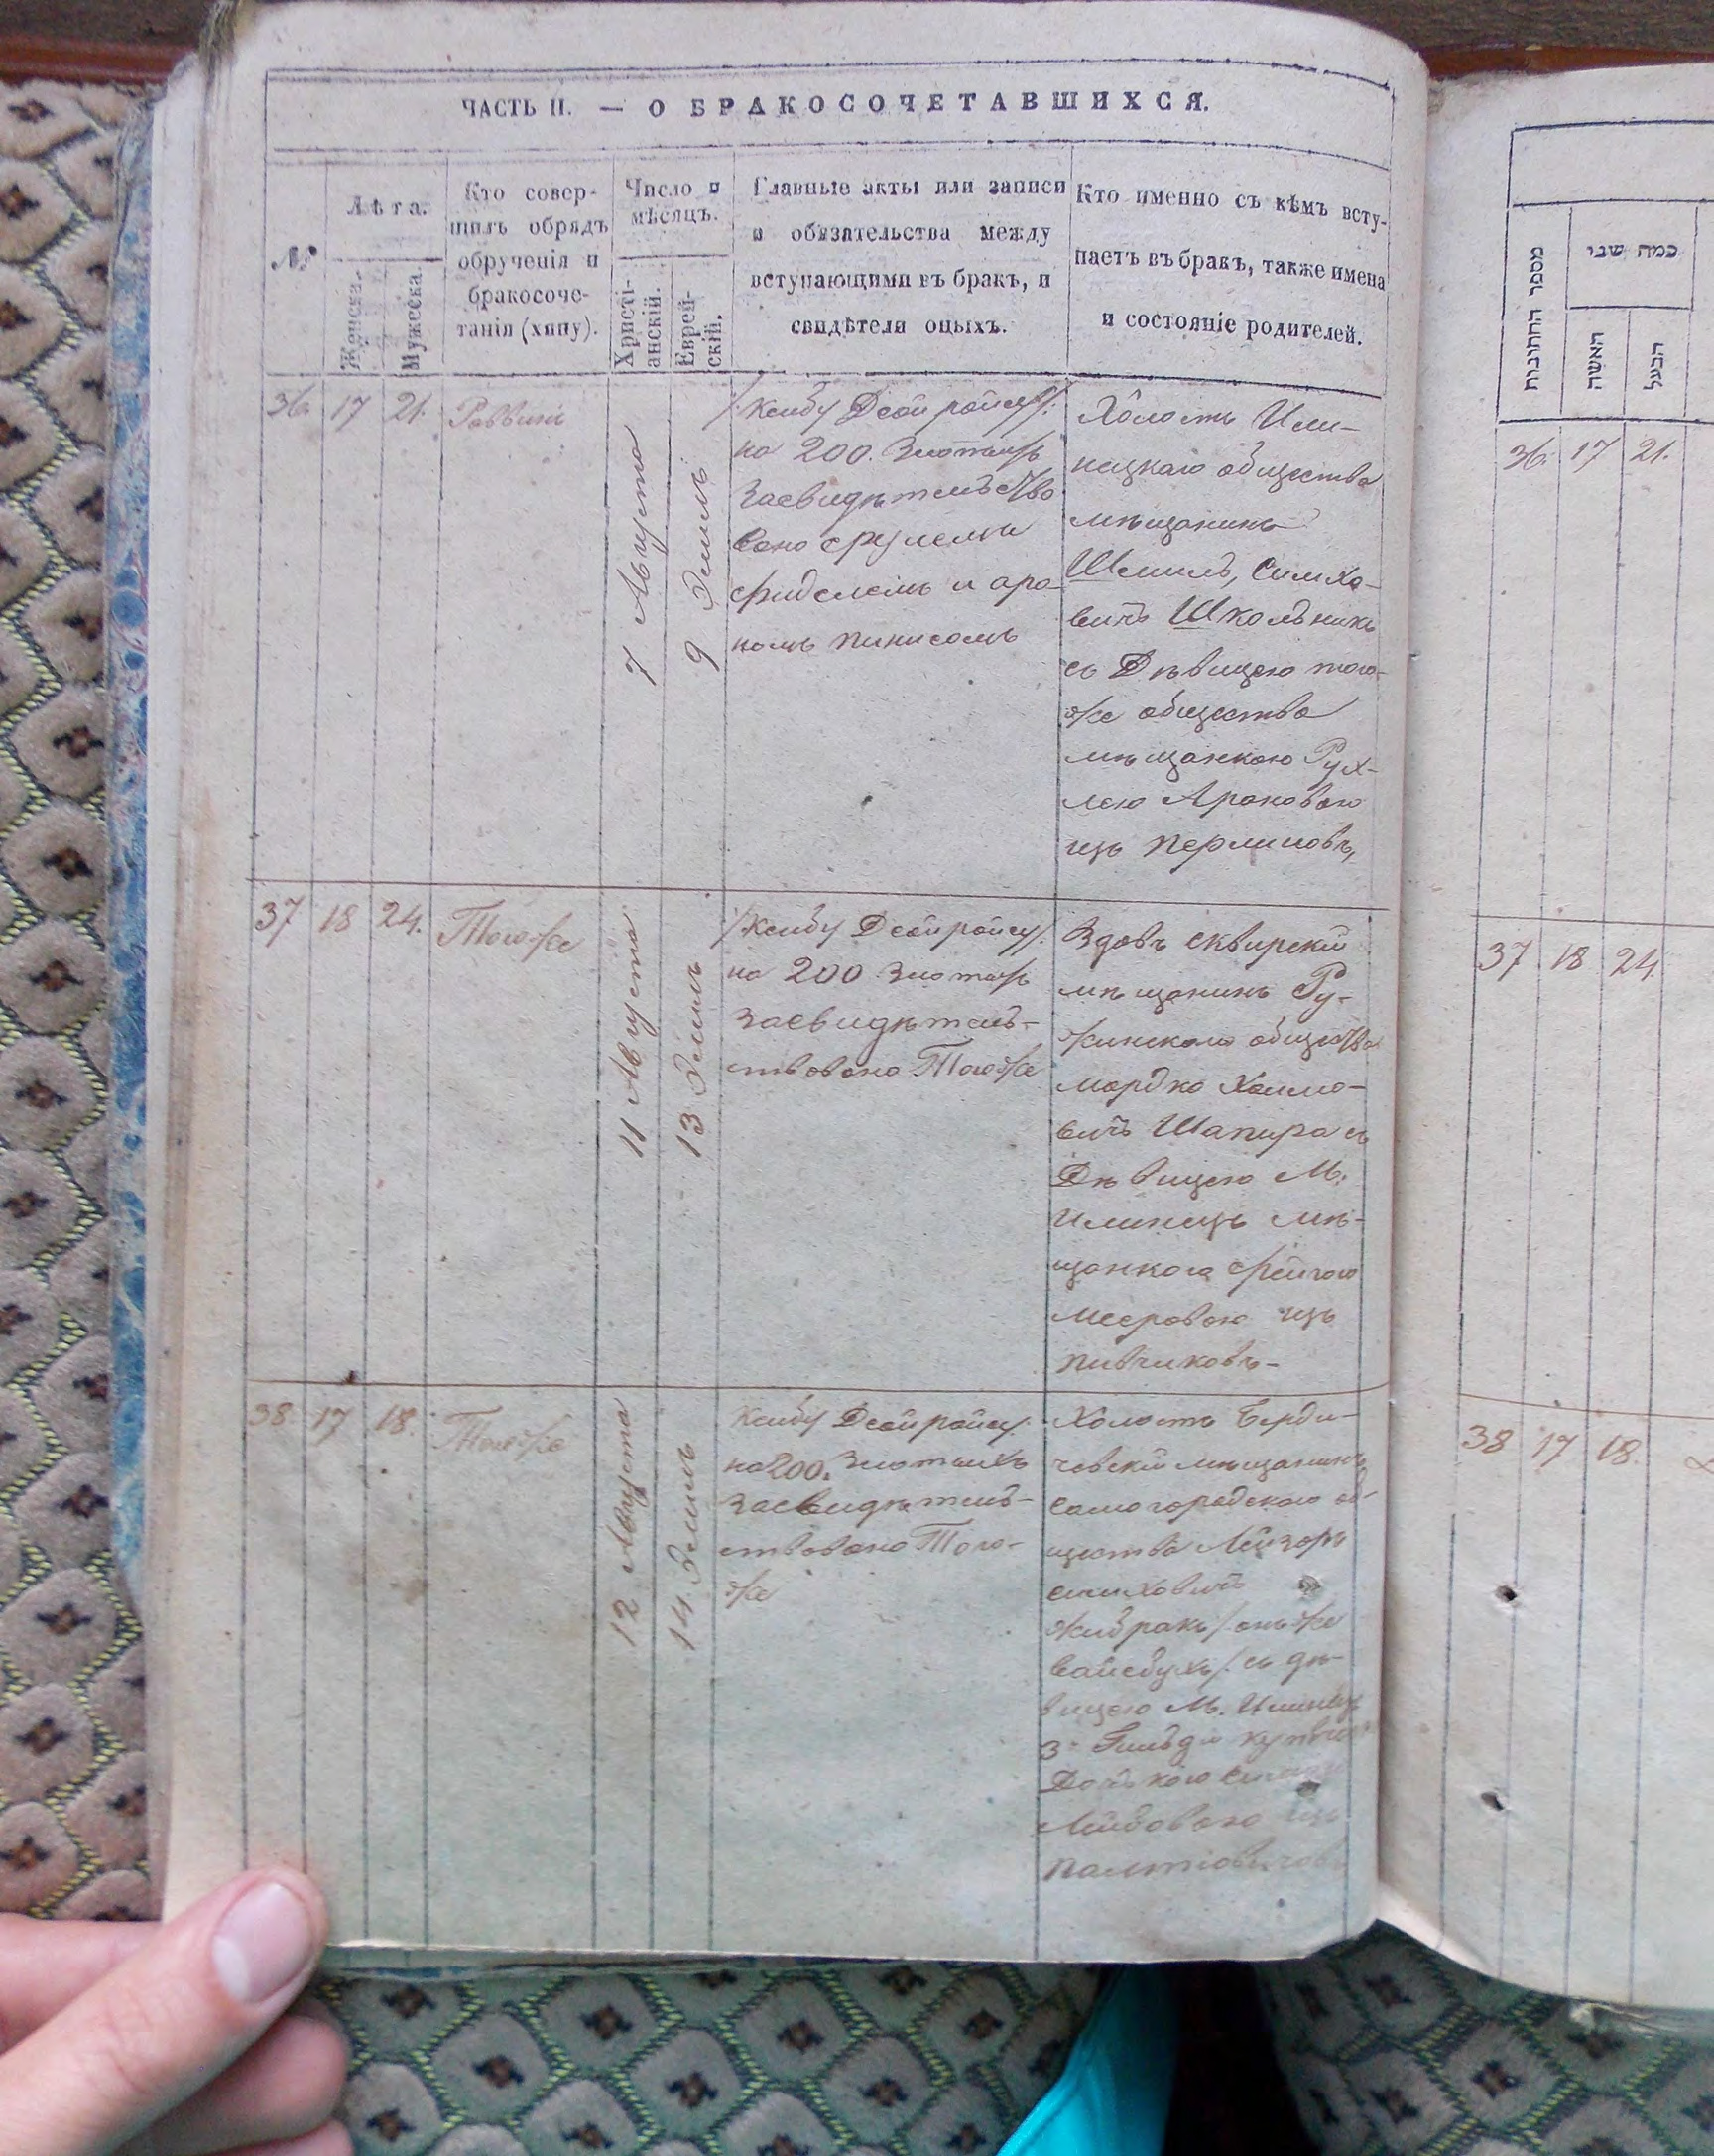 ЧАСТЬ II. — О БРАКОСОЧЕТАВШИХСЯ.
№
Лѣта.
Женска.
Мужеска.
Кто совер-
шилъ обрядъ
обрученія и
бракосоче-
танія (хипу).
Число и
мѣсяцъ.
Христі-
анскій.
Еврей-
скій.
Главные акты или записи
и обязательства между
вступающими въ бракъ, и
свидѣтели оныхъ.
Кто именно съ кѣмъ всту-
паетъ въ бракъ, также имена
и состояніе родителей.
36. 17 21. Раввинъ
7 Августа
9 Элилъ
/:Ксибу Деойрайсу:/
на 200. Злотыхъ
Засвидѣтельство
вано срулемъ
фиделемъ и аро-
номъ пинисомъ
Холостъ Или-
нецкаго общества
мѣщанинъ
Шмиль, Симхо-
вичъ Школьникъ
съ Дѣвицею того-
же общества
мѣщанкою Рух-
лею Ароновою
изъ Перлиновъ,
37 18 24. Тогоже
11 Августа
13 Элилъ
/:Ксибу Деойрайсу:/
на 200 Злотыхъ
Засвидѣтель-
ствовано Тогоже
Вдовъ сквирскій
мѣщанинъ Ру-
жинскаго общества
мордко Хаимо-
вичъ Шапира съ
Дѣвицею М.
Илинецъ мѣ-
щанкою
мееровою изъ
пивчиковъ-
38 17 18. Тогоже
12 Августа
14 Элилъ
Ксибу Деойрайсу:
на 200. Злотыхъ
Засвидѣтель-
ствовано Того-
же
Холостъ Берди-
чевскій мѣщанинъ
самогородскаго об-
щества Лейзоръ
/:онъже
вайсбухъ/: съ дѣ-
вицею М. Илинецъ
3й Гильдіи
Дочькою
Лейбовою изъ
מספר החתונות
כמה שני
האשה
הבעל
36. 17 21.
37 18 24.
38 17 18.